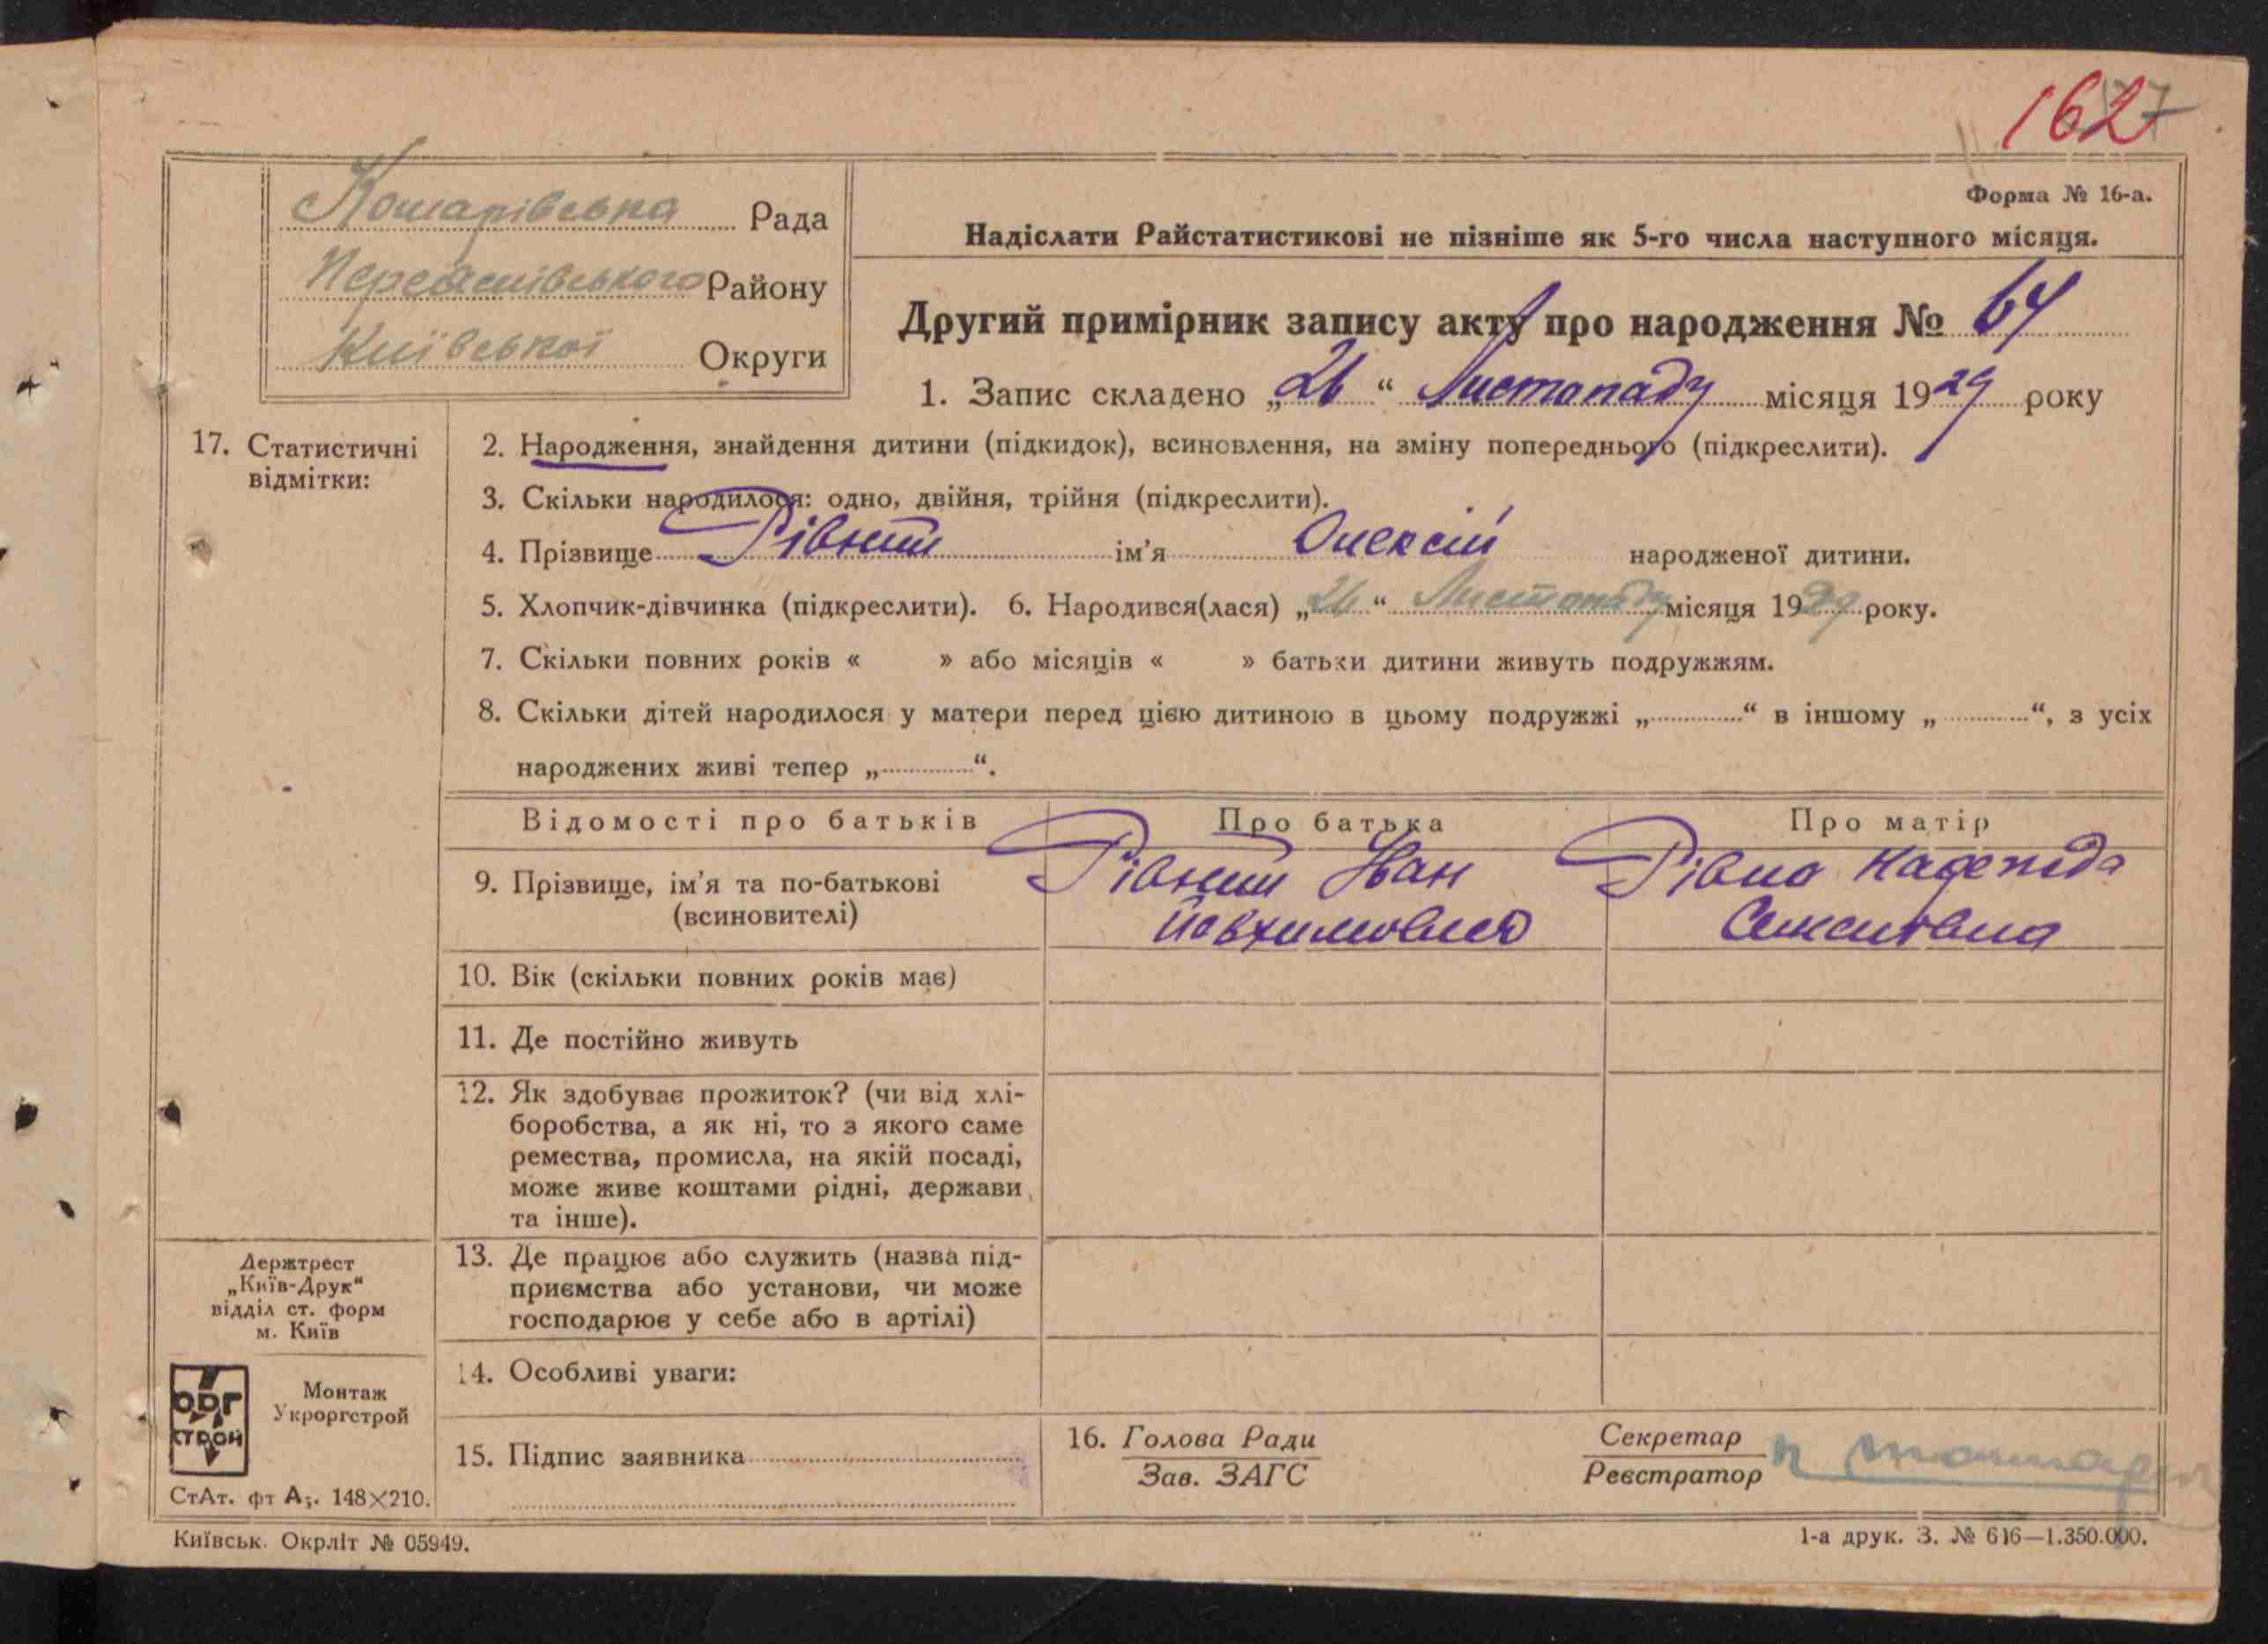 162
Форма № 16-а.
Комарівська Рада
Района
Київської Округи
Надіслати Райстатистикові не пізніше як 5-го числа наступного місяця.
Другий примірник запису акту про народження № 64
1. Запис складено „26“ Листопаду місяця 1929 року
17. Статистичні
відмітки:
2. Народження, знайдення дитини (підкидок), всиновлення, на зміну попереднього (підкреслити).
3. Скільки народилося: одно, двійня, трійня (підкреслити).
4. Прізвище Рівний ім'я Олексій народженої дитини.
5. Хлопчик-дівчинка (підкреслити). 6. Народився(лася) „26“ Листопаду місяця 1929 року.
7. Скільки повних років « » або місяців « » батьки дитини живуть подружжям.
8. Скільки дітей народилося у матери перед цією дитиною в цьому подружжі „ “ в іншому „ “, з усіх
народжених живі тепер „ “.
Відомості про батьків Про батька Про матір
9. Прізвище, ім'я та по-батькові
(всиновителі)
Рівний Іван
Йовхимович
Рівна Надежда
Семенівна
10. Вік (скільки повних років має)
11. Де постійно живуть
12. Як здобуває прожиток? (чи від хлі-
боробства, а як ні, то з якого саме
ремества, промисла, на якій посаді,
може живе коштами рідні, держави
та інше).
13. Де працює або служить (назва під-
приємства або установи, чи може
господарює у себе або в артілі)
14. Особливі уваги:
15. Підпис заявника
16. Голова Ради
Зав. ЗАГС
Секретар
Реєстратор
Держтрест
„Київ-Друк“
відділ ст. форм
м. Київ
ОРГ
СТРОЙ
Монтаж
Укроргстрой
СтАт. фт А₅. 148×210.
Київськ. Окрліт № 05949.
1-а друк. З. № 616—1.350.000.